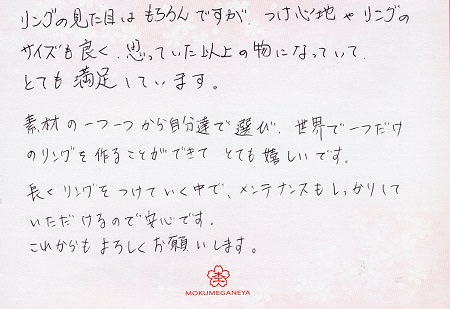 リングの見た目はもちろんですが、つけ心地やリングの
サイズも良く、思っていた以上の物になっていて、
とても満足しています。
素材の一つ一つから自分達で選び、世界で一つだけ
のリングを作ることができて とても嬉しいです。
長くリングをつけていく中で、メンテナンスもしっかりして
いただけるので安心です。
これからも よろしくお願いします。
MOKUMEGANEYA